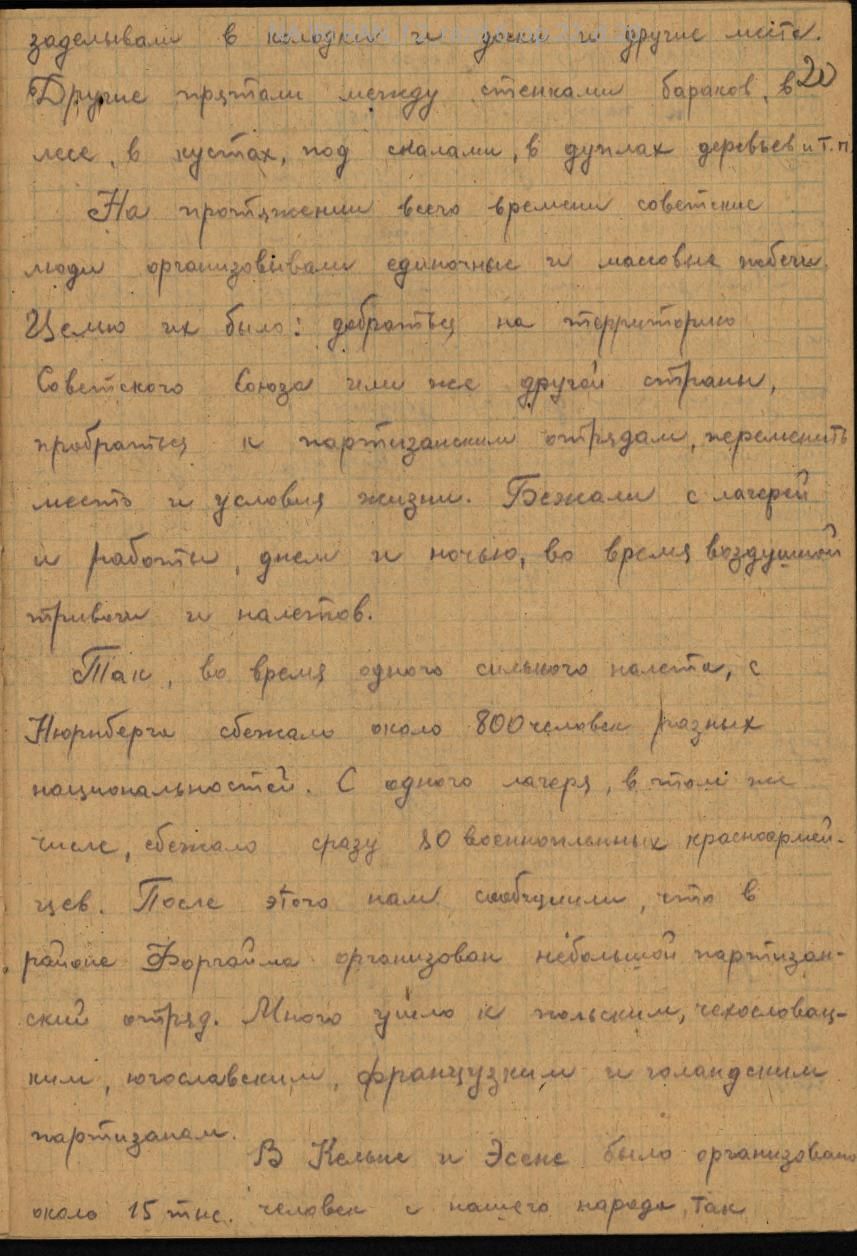 заделывали в колодки и доски и другие места.
20
Другие прятали между стенками бараков, в
лесе, в кустах, под скалами, в дуплах деревьев и т.п.
На протяжении всего времени советские
люди организовывали единочные и массовые побеги.
Целью их было: добраться на территорию
Советского Союза или же другой страны,
пробраться к партизанским отрядам, переменить
место и условия жизни. Бежали с лагерей
и работы, днем и ночью, во время воздушной
тривоги и налетов.
Так, во время одного сильного налета, с
Нюрнберга сбежало около 800 человек разных
национальностей. С одного лагеря, в том же
числе, сбежало сразу 80 военнопленных красноармей-
цев. После этого нам сообщили, что в
районе Форгайма организован небольшой партизан-
ский отряд. Много ушло к польским, чехословац-
ким, югославским, французким и голандским
партизанам.
В Кельне и Эсене было организовано
около 15 тыс. человек с нашего народа, так